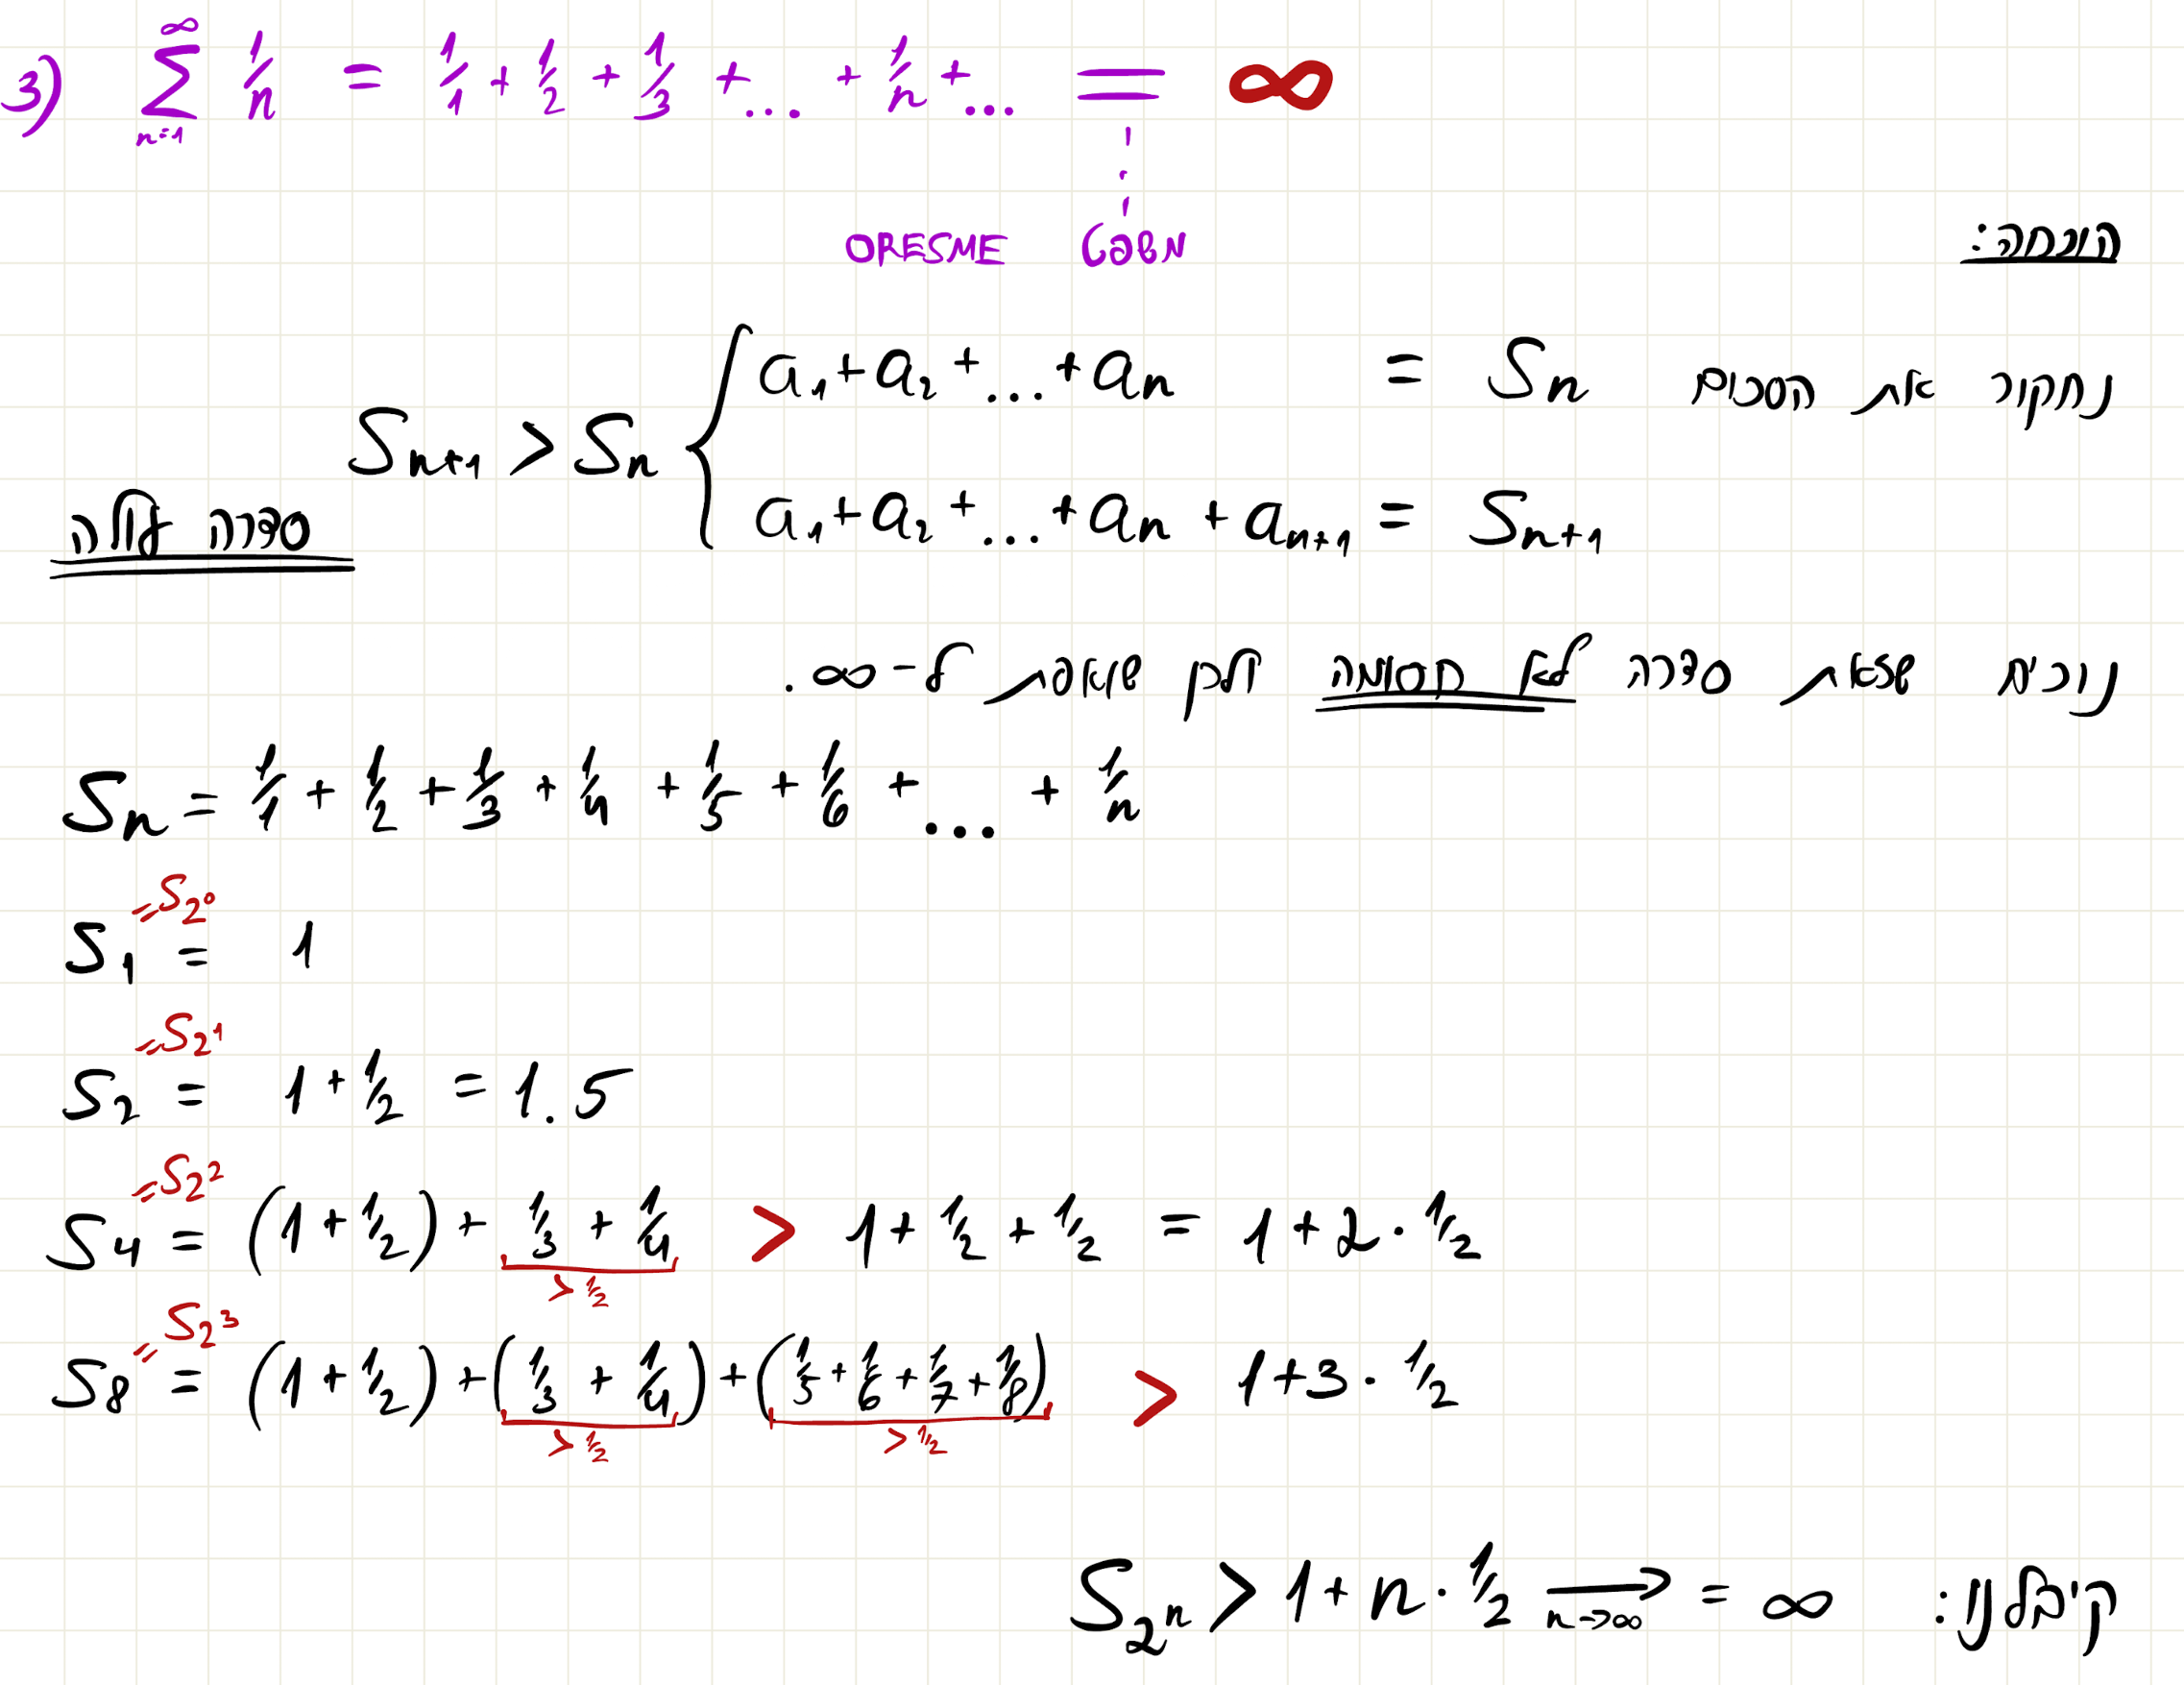 3) ∑_{n=1}^{∞} 1/n = 1/1 + 1/2 + 1/3 + ... + 1/n + ... = ∞
משפט ORESME
הוכחה:
נחקור את הסכום S_n = a_1 + a_2 + ... + a_n
S_{n+1} > S_n {
S_{n+1} = a_1 + a_2 + ... + a_n + a_{n+1}
סדרה עולה
נוכיח שזאת סדרה לא חסומה ולכן שואפת ל-∞.
S_n = 1/1 + 1/2 + 1/3 + 1/4 + 1/5 + 1/6 + ... + 1/n
= S_{2^0}
S_1 = 1
= S_{2^1}
S_2 = 1 + 1/2 = 1.5
= S_{2^2}
S_4 = (1 + 1/2) + 1/3 + 1/4 > 1 + 1/2 + 1/2 = 1 + 2 · 1/2
> 1/2
= S_{2^3}
S_8 = (1 + 1/2) + (1/3 + 1/4) + (1/5 + 1/6 + 1/7 + 1/8) > 1 + 3 · 1/2
> 1/2 > 1/2
קיבלנו: S_{2^n} > 1 + n · 1/2 →_{n→∞} = ∞